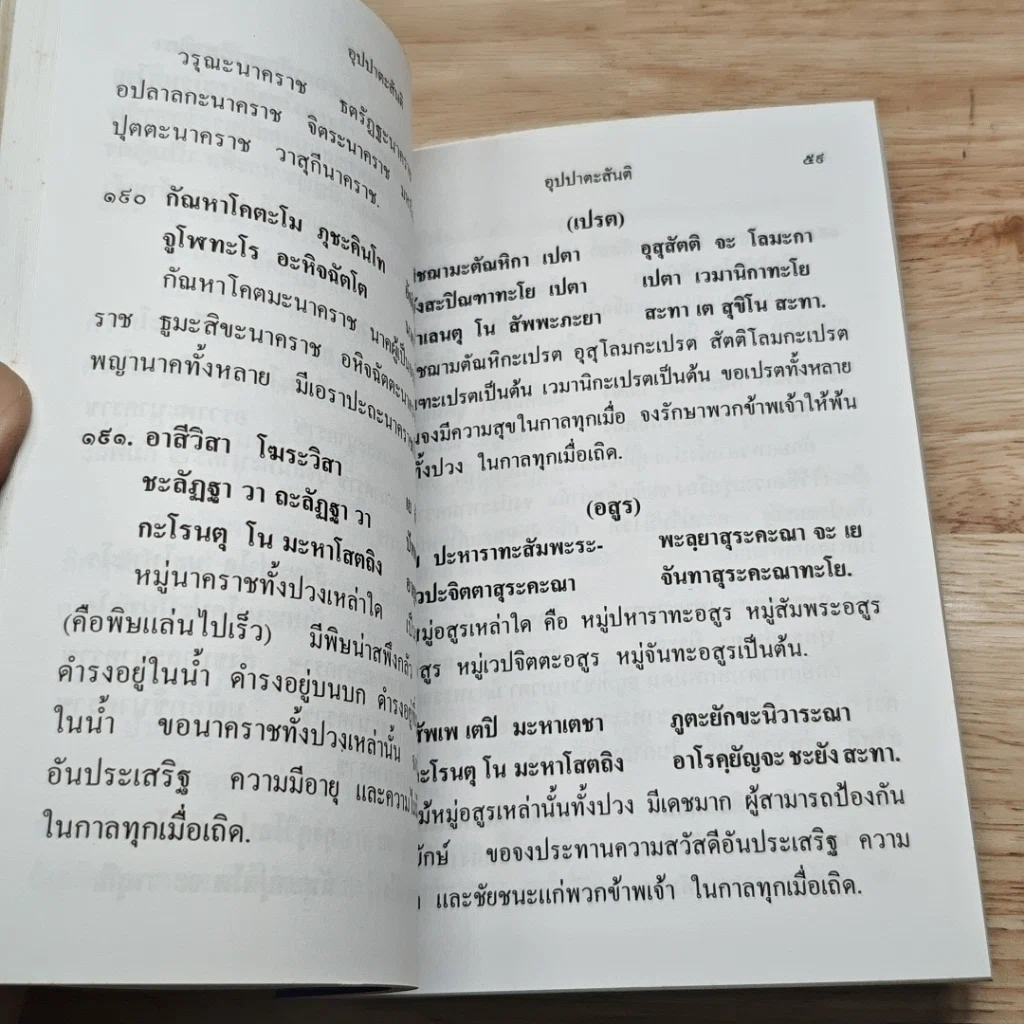 อุปปาตะสันติ
วรุณะนาคราช ธตรัฏฐะนาคราช
อปลาลกะนาคราช จิตระนาคราช
ปุตตะนาคราช วาสุกีนาคราช.
๑๙๐ กัณหาโคตะโม ภุชะคินโท
จูโฬทะโร อะหิจฉัตโต
กัณหาโคตมะนาคราช นาคผู้เป็น
ราช ธูมะสิขะนาคราช อหิจฉัตตะนาค
พญานาคทั้งหลาย มีเอราปะถะนาคราช
๑๙๑. อาสีวิสา โฆระวิสา
ชะลัฏฐา วา ถะลัฏฐา วา
กะโรนตุ โน มะหาโสตถิง
หมู่นาคราชทั้งปวงเหล่าใด
(คือพิษแล่นไปเร็ว) มีพิษน่าสพึงกลัว
ดำรงอยู่ในน้ำ ดำรงอยู่บนบก ดำรงอยู่
ในน้ำ ขอนาคราชทั้งปวงเหล่านั้น
อันประเสริฐ ความมีอายุ และความ
ในกาลทุกเมื่อเถิด.
อุปปาตะสันติ ๕๙
(เปรต)
ชฌามะตัณหิกา เปตา อุสุสัตติ จะ โลมะกา
ังสะปิณฑาทะโย เปตา เปตา เวมานิกาทะโย
าเลนตุ โน สัพพะภะยา สะทา เต สุขิโน สะทา.
ชฌามตัณหิกะเปรต อุสุโลมกะเปรต สัตติโลมกะเปรต
ฑะเปรตเป็นต้น เวมานิกะเปรตเป็นต้น ขอเปรตทั้งหลาย
นจงมีความสุขในกาลทุกเมื่อ จงรักษาพวกข้าพเจ้าให้พ้น
ทั้งปวง ในกาลทุกเมื่อเถิด.
(อสูร)
ปะหาราทะสัมพะระ- พะลฺยาสุระคะณา จะ เย
วปะจิตตาสุระคะณา จันทาสุระคะณาทะโย.
หมู่อสูรเหล่าใด คือ หมู่ปหาราทะอสูร หมู่สัมพระอสูร
สูร หมู่เวปจิตตะอสูร หมู่จันทะอสูรเป็นต้น.
ัพเพ เตปิ มะหาเตชา ภูตะยักขะนิวาระณา
กะโรนตุ โน มะหาโสตถิง อาโรคฺยัญจะ ชะยัง สะทา.
ม้หมู่อสูรเหล่านั้นทั้งปวง มีเดชมาก ผู้สามารถป้องกัน
ยักษ์ ขอจงประทานความสวัสดีอันประเสริฐ ความ
และชัยชนะแก่พวกข้าพเจ้า ในกาลทุกเมื่อเถิด.